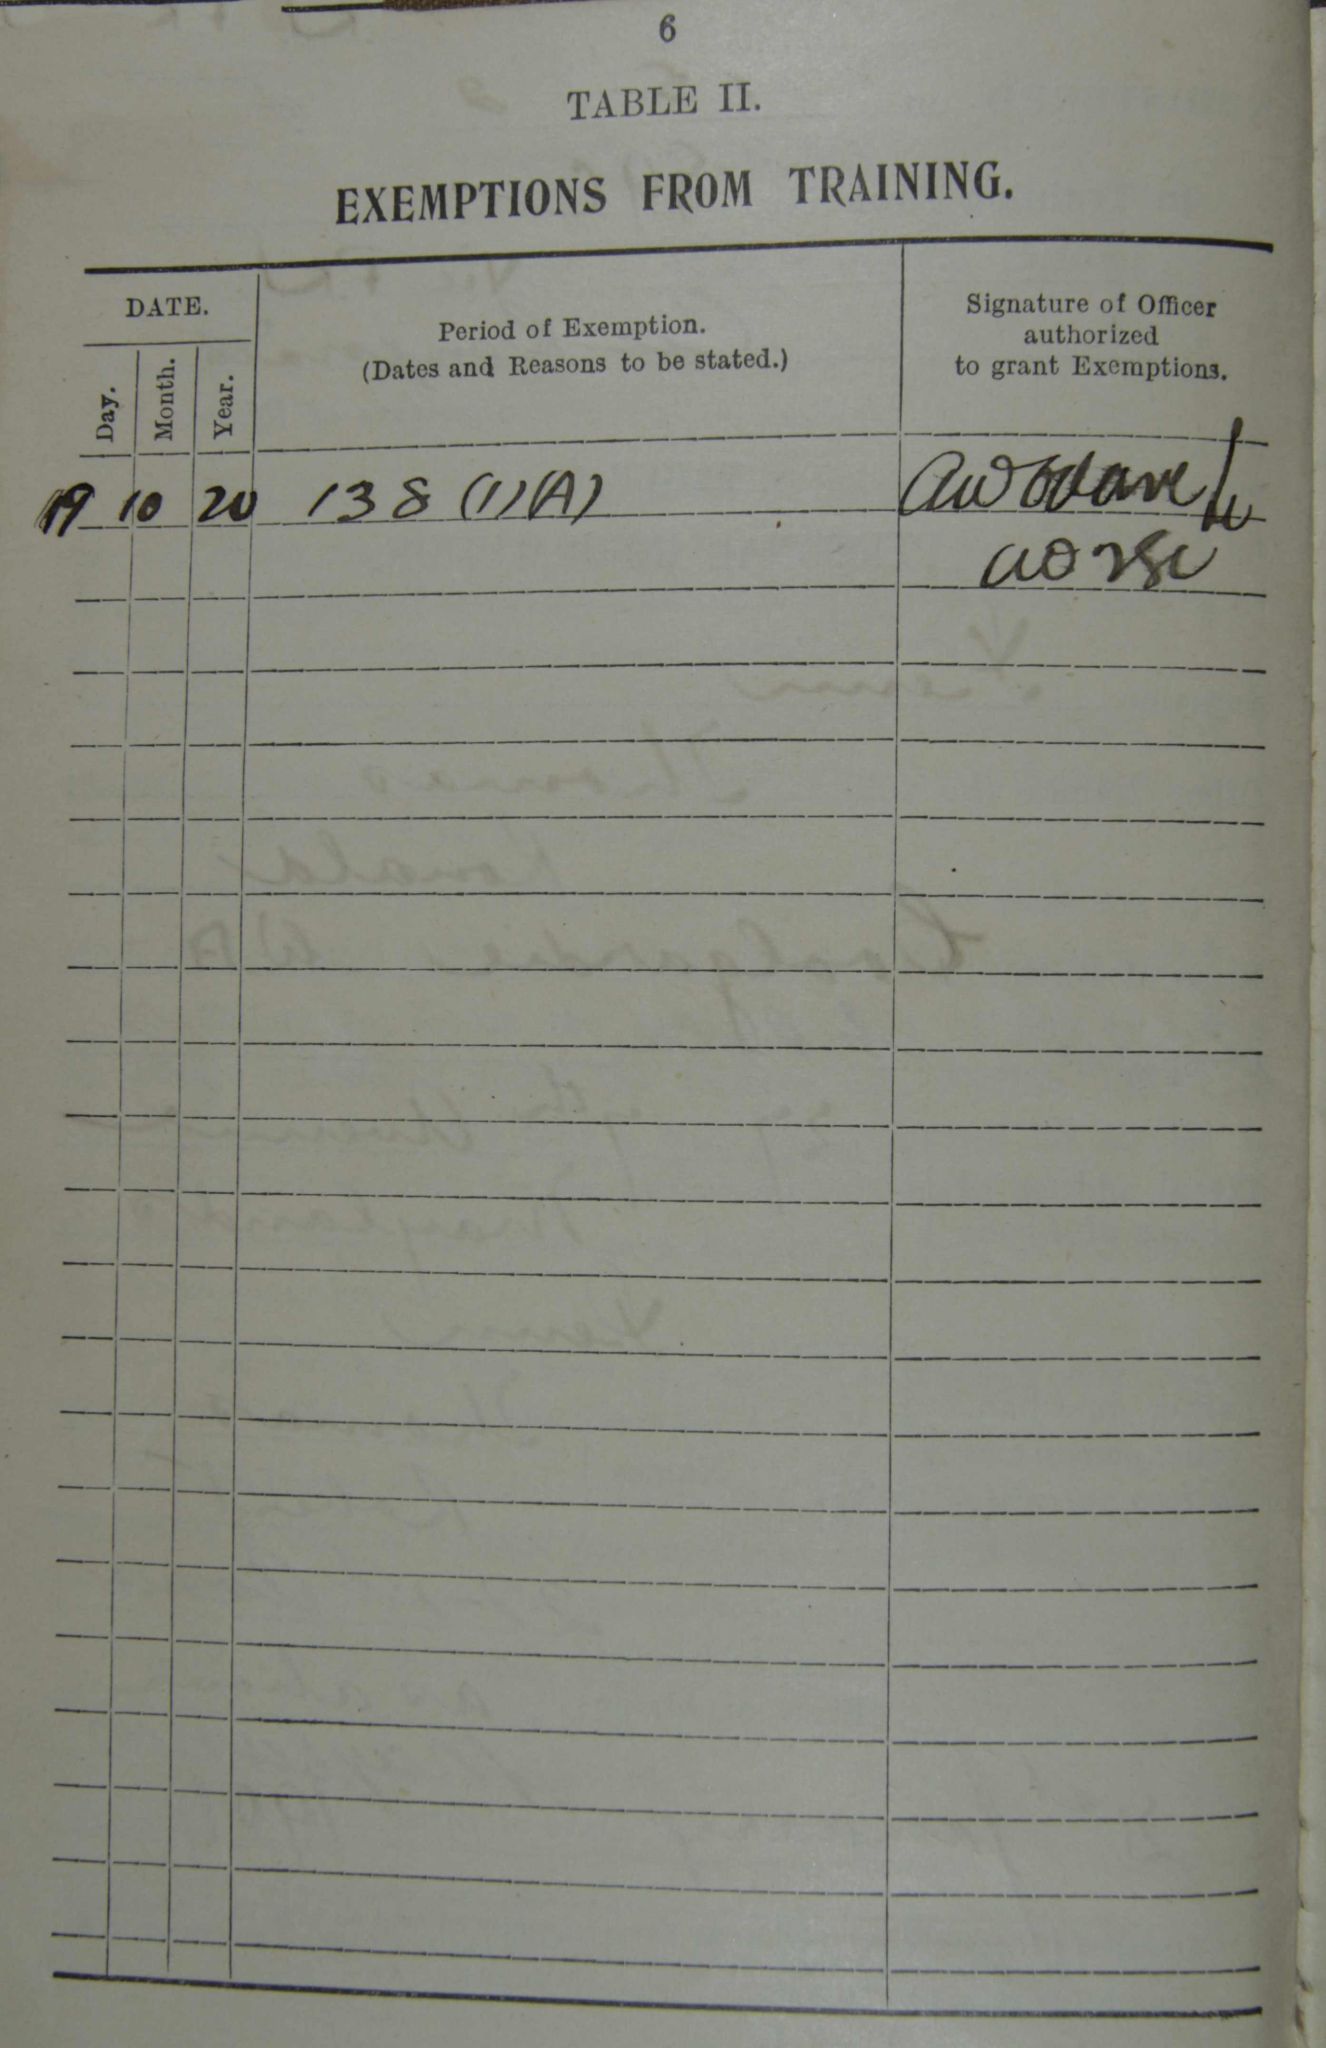 6
TABLE II.
EXEMPTIONS FROM TRAINING.
DATE.
Day.
Month.
Year.
Period of Exemption.
(Dates and Reasons to be stated.)
Signature of Officer
authorized
to grant Exemptions.
19 10 20 138 (1)(A)